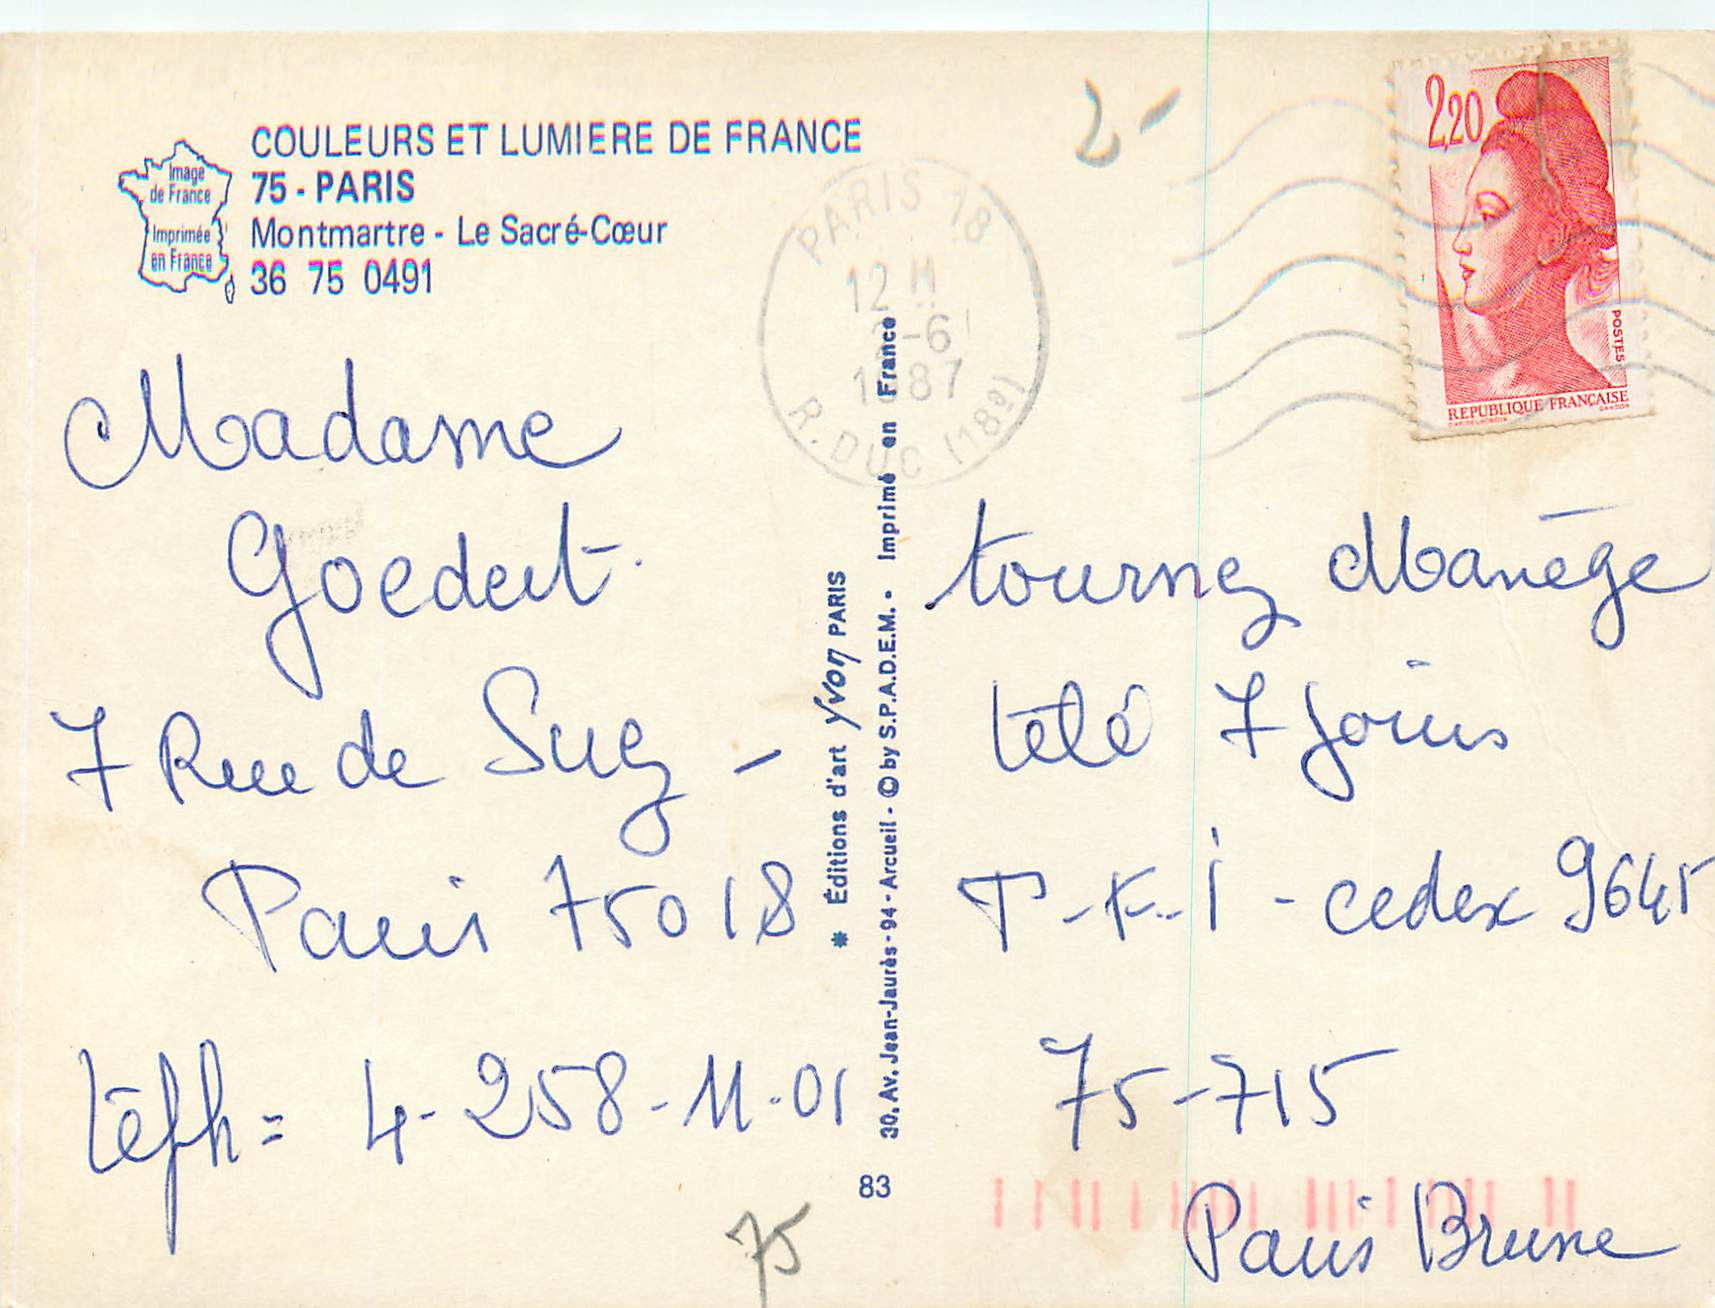 COULEURS ET LUMIERE DE FRANCE
75 - PARIS
Montmartre - Le Sacré-Cœur
36 75 0491
Image
de France
Imprimée
en France
2-
PARIS 18
12 H
-6
1987
R. DUC (18e)
2,20
POSTES
REPUBLIQUE FRANÇAISE
GANDON
Madame
Goedert
7 Rue de Suez -
Paris 75018
téph = 4-258-11-01
* Éditions d'art Yvon PARIS
30, Av. Jean-Jaurès - 94 - Arcueil - © by S.P.A.D.E.M. - Imprimé en France
83
75
tournez Manège
télé 7 jours
cedex 9645
75-715
Paris Brune